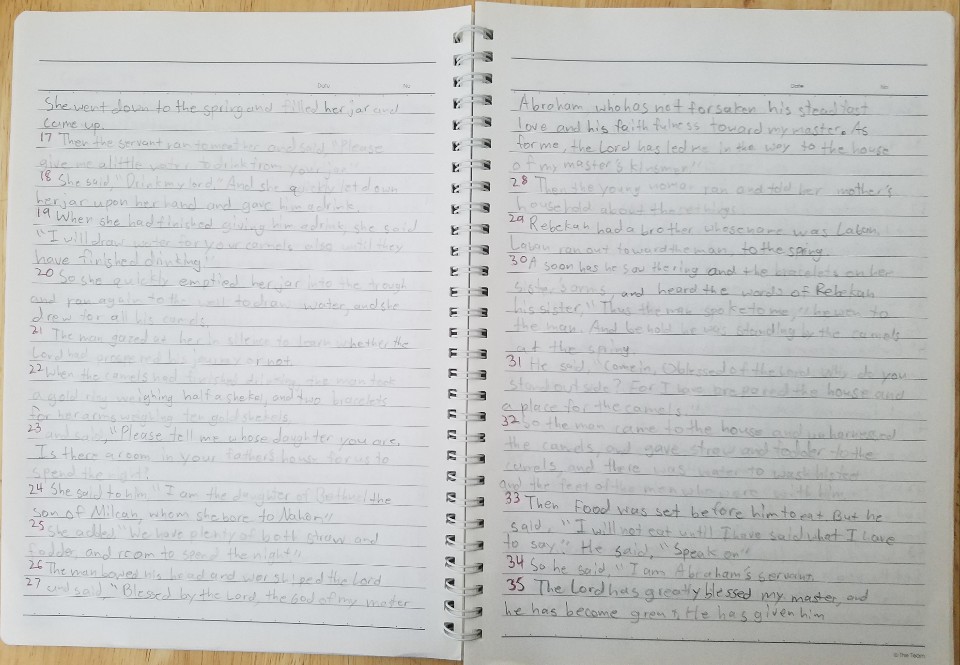 Date No
She went down to the spring and filled her jar and
came up.
17 Then the servant ran to meet her and said "Please
give me a little water to drink from your jar"
18 She said, "Drink my lord." And she quickly let down
her jar upon her hand and gave him a drink.
19 When she had finished giving him a drink, she said
"I will draw water for your camels also until they
have finished drinking"
20 So she quickly emptied her jar into the trough
and ran again to the well to draw water, and she
drew for all his camels.
21 The man gazed at her in silence to learn whether the
Lord had prospered his journey or not
22 When the camels had finished drinking, the man took
a gold ring weighing half a shekel, and two bracelets
for her arms weighing ten gold shekels
23 and said, "Please tell me whose daughter you are.
Is there a room in your father's house for us to
spend the night?
24 She said to him "I am the daughter of Bethuel the
son of Milcah, whom she bore to Nahor"
25 She added "We have plenty of both straw and
fodder, and room to spend the night"
26 The man bowed his head and worshiped the Lord
27 and said, "Blessed by the Lord, the God of my master
Date No
Abraham who has not forsaken his steadfast
love and his faithfulness toward my master. As
for me, the Lord has led me in the way to the house
of my master's kinsman"
28 Then the young woman ran and told her mother's
household about these things
29 Rebekah had a brother whose name was Laban
Laban ran out toward the man, to the spring.
30 A soon has he saw the ring and the bracelets on her
sister's arms, and heard the words of Rebekah
his sister, "Thus the man spoke to me," he wen to
the man. And behold he was standing by the camels
at the spring.
31 He said, "Come in, O blessed of the Lord. Why do you
stand outside? For I have prepared the house and
a place for the camels."
32 So the man came to the house and unharnessed
the camels, and gave straw and fodder to the
camels, and there was water to wash his feet
and the feet of the men who were with him
33 Then Food was set before him to eat. But he
said, "I will not eat until I have said what I have
to say" He said, "Speak on"
34 So he said "I am Abraham's servant.
35 The Lord has greatly blessed my master, and
he has become great, He has given him